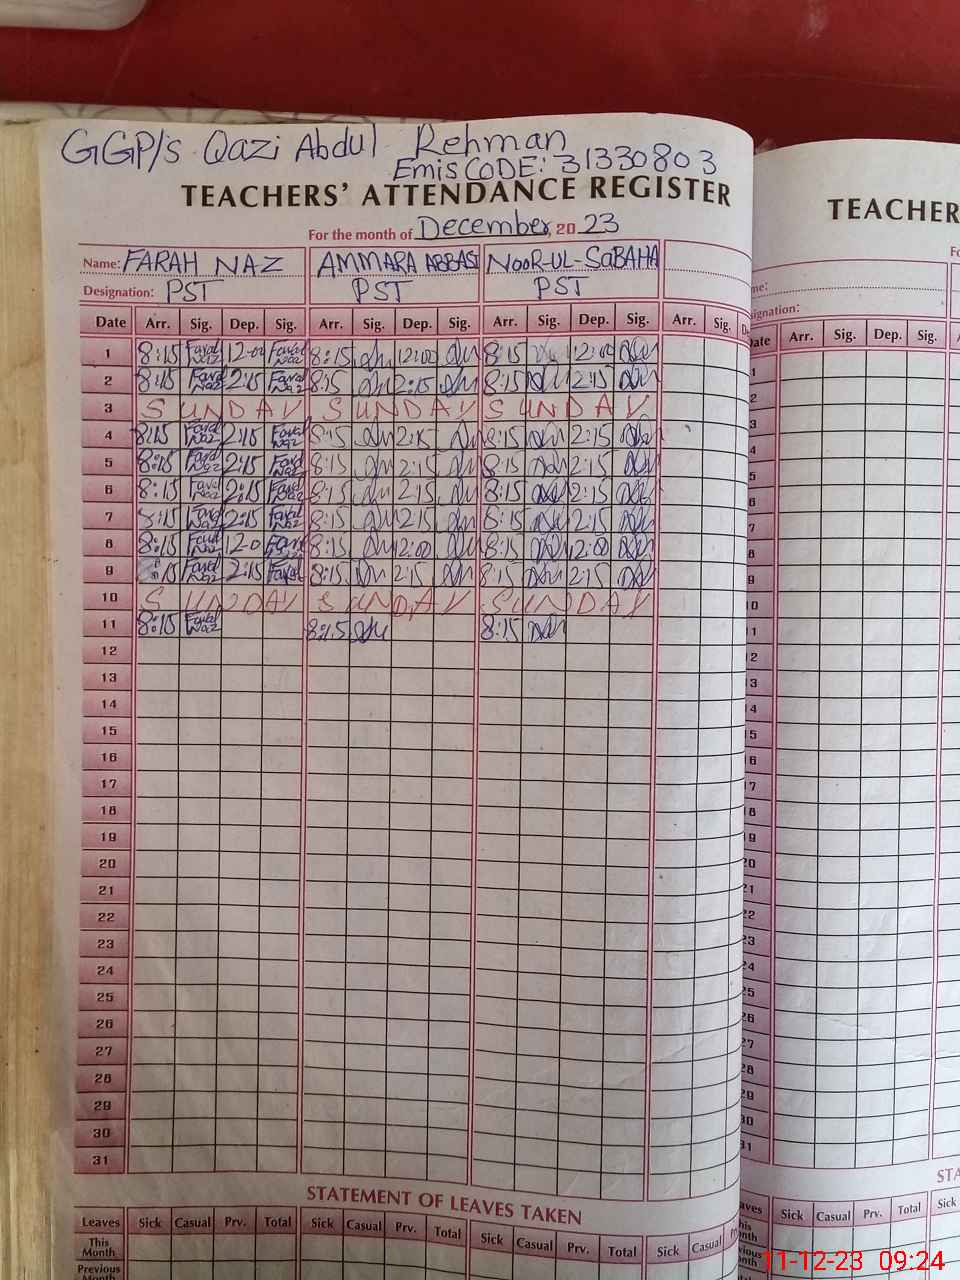 GGP/s Qazi Abdul Rehman
Emis CODE: 31330803
TEACHERS' ATTENDANCE REGISTER
For the month of December, 2023
Name: FARAH NAZ AMMARA ABBASI NOOR-UL-SABAHA
Designation: PST PST PST
Date Arr. Sig. Dep. Sig. Arr. Sig. Dep. Sig. Arr. Sig. Dep. Sig. Arr. Sig.
1 8:15 Farah Naz 12-00 Farah Naz 8:15 12:00 8:15 12:00
2 8:15 Farah Naz 2:15 Farah Naz 8:15 2:15 8:15 2:15
3 SUNDAY SUNDAY SUNDAY
4 8:15 Farah Naz 2:15 Farah Naz 8:15 2:15 8:15 2:15
5 8:15 Farah Naz 2:15 Farah Naz 8:15 2:15 8:15 2:15
6 8:15 Farah Naz 2:15 Farah Naz 8:15 2:15 8:15 2:15
7 8:15 Farah Naz 2:15 Farah Naz 8:15 2:15 8:15 2:15
8 8:15 Farah Naz 12-0 Farah Naz 8:15 12:00 8:15 12:00
9 8:15 Farah Naz 2:15 Farah 8:15 2:15 8:15 2:15
10 SUNDAY SUNDAY SUNDAY
11 8:15 Farah Naz 8:15 8:15
12
13
14
15
16
17
18
19
20
21
22
23
24
25
26
27
28
29
30
31
STATEMENT OF LEAVES TAKEN
Leaves Sick Casual Prv. Total Sick Casual Prv. Total Sick Casual Prv. Total Sick Casual
This Month
Previous Month
TEACHER
Arr. Sig. Dep. Sig.
STA
Sick Casual Prv. Total Sick
11-12-23 09:24